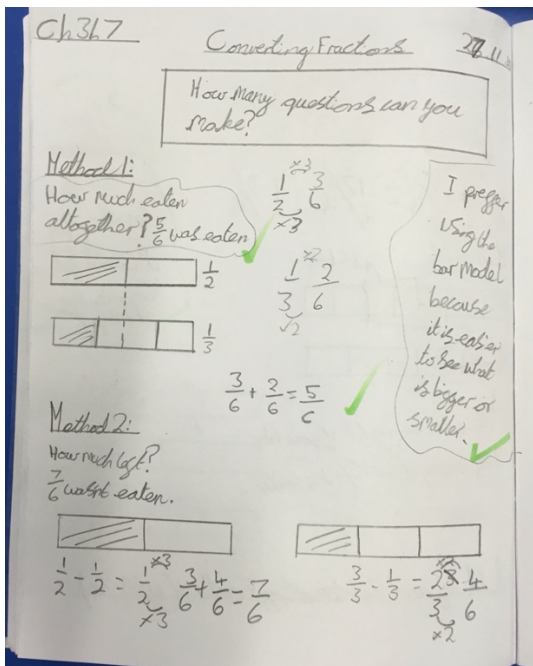 Ch3L7
Converting Fractions
27.11
How many questions can you
make?
Method 1:
How much eaten
altogether? 5/6 was eaten
1/2 ×3 3/6
×3
1/2
1/3 ×2 2/6
×2
1/3
3/6 + 2/6 = 5/6
I preffer
using the
bar model
because
it is easier
to see what
is bigger or
smaller.
Method 2:
How much left?
7/6 wasn't eaten.
1/2 - 1/2 = 1/2 ×3 3/6 + 4/6 = 7/6
×3
3/3 - 1/3 = 2/3 4/6
×2